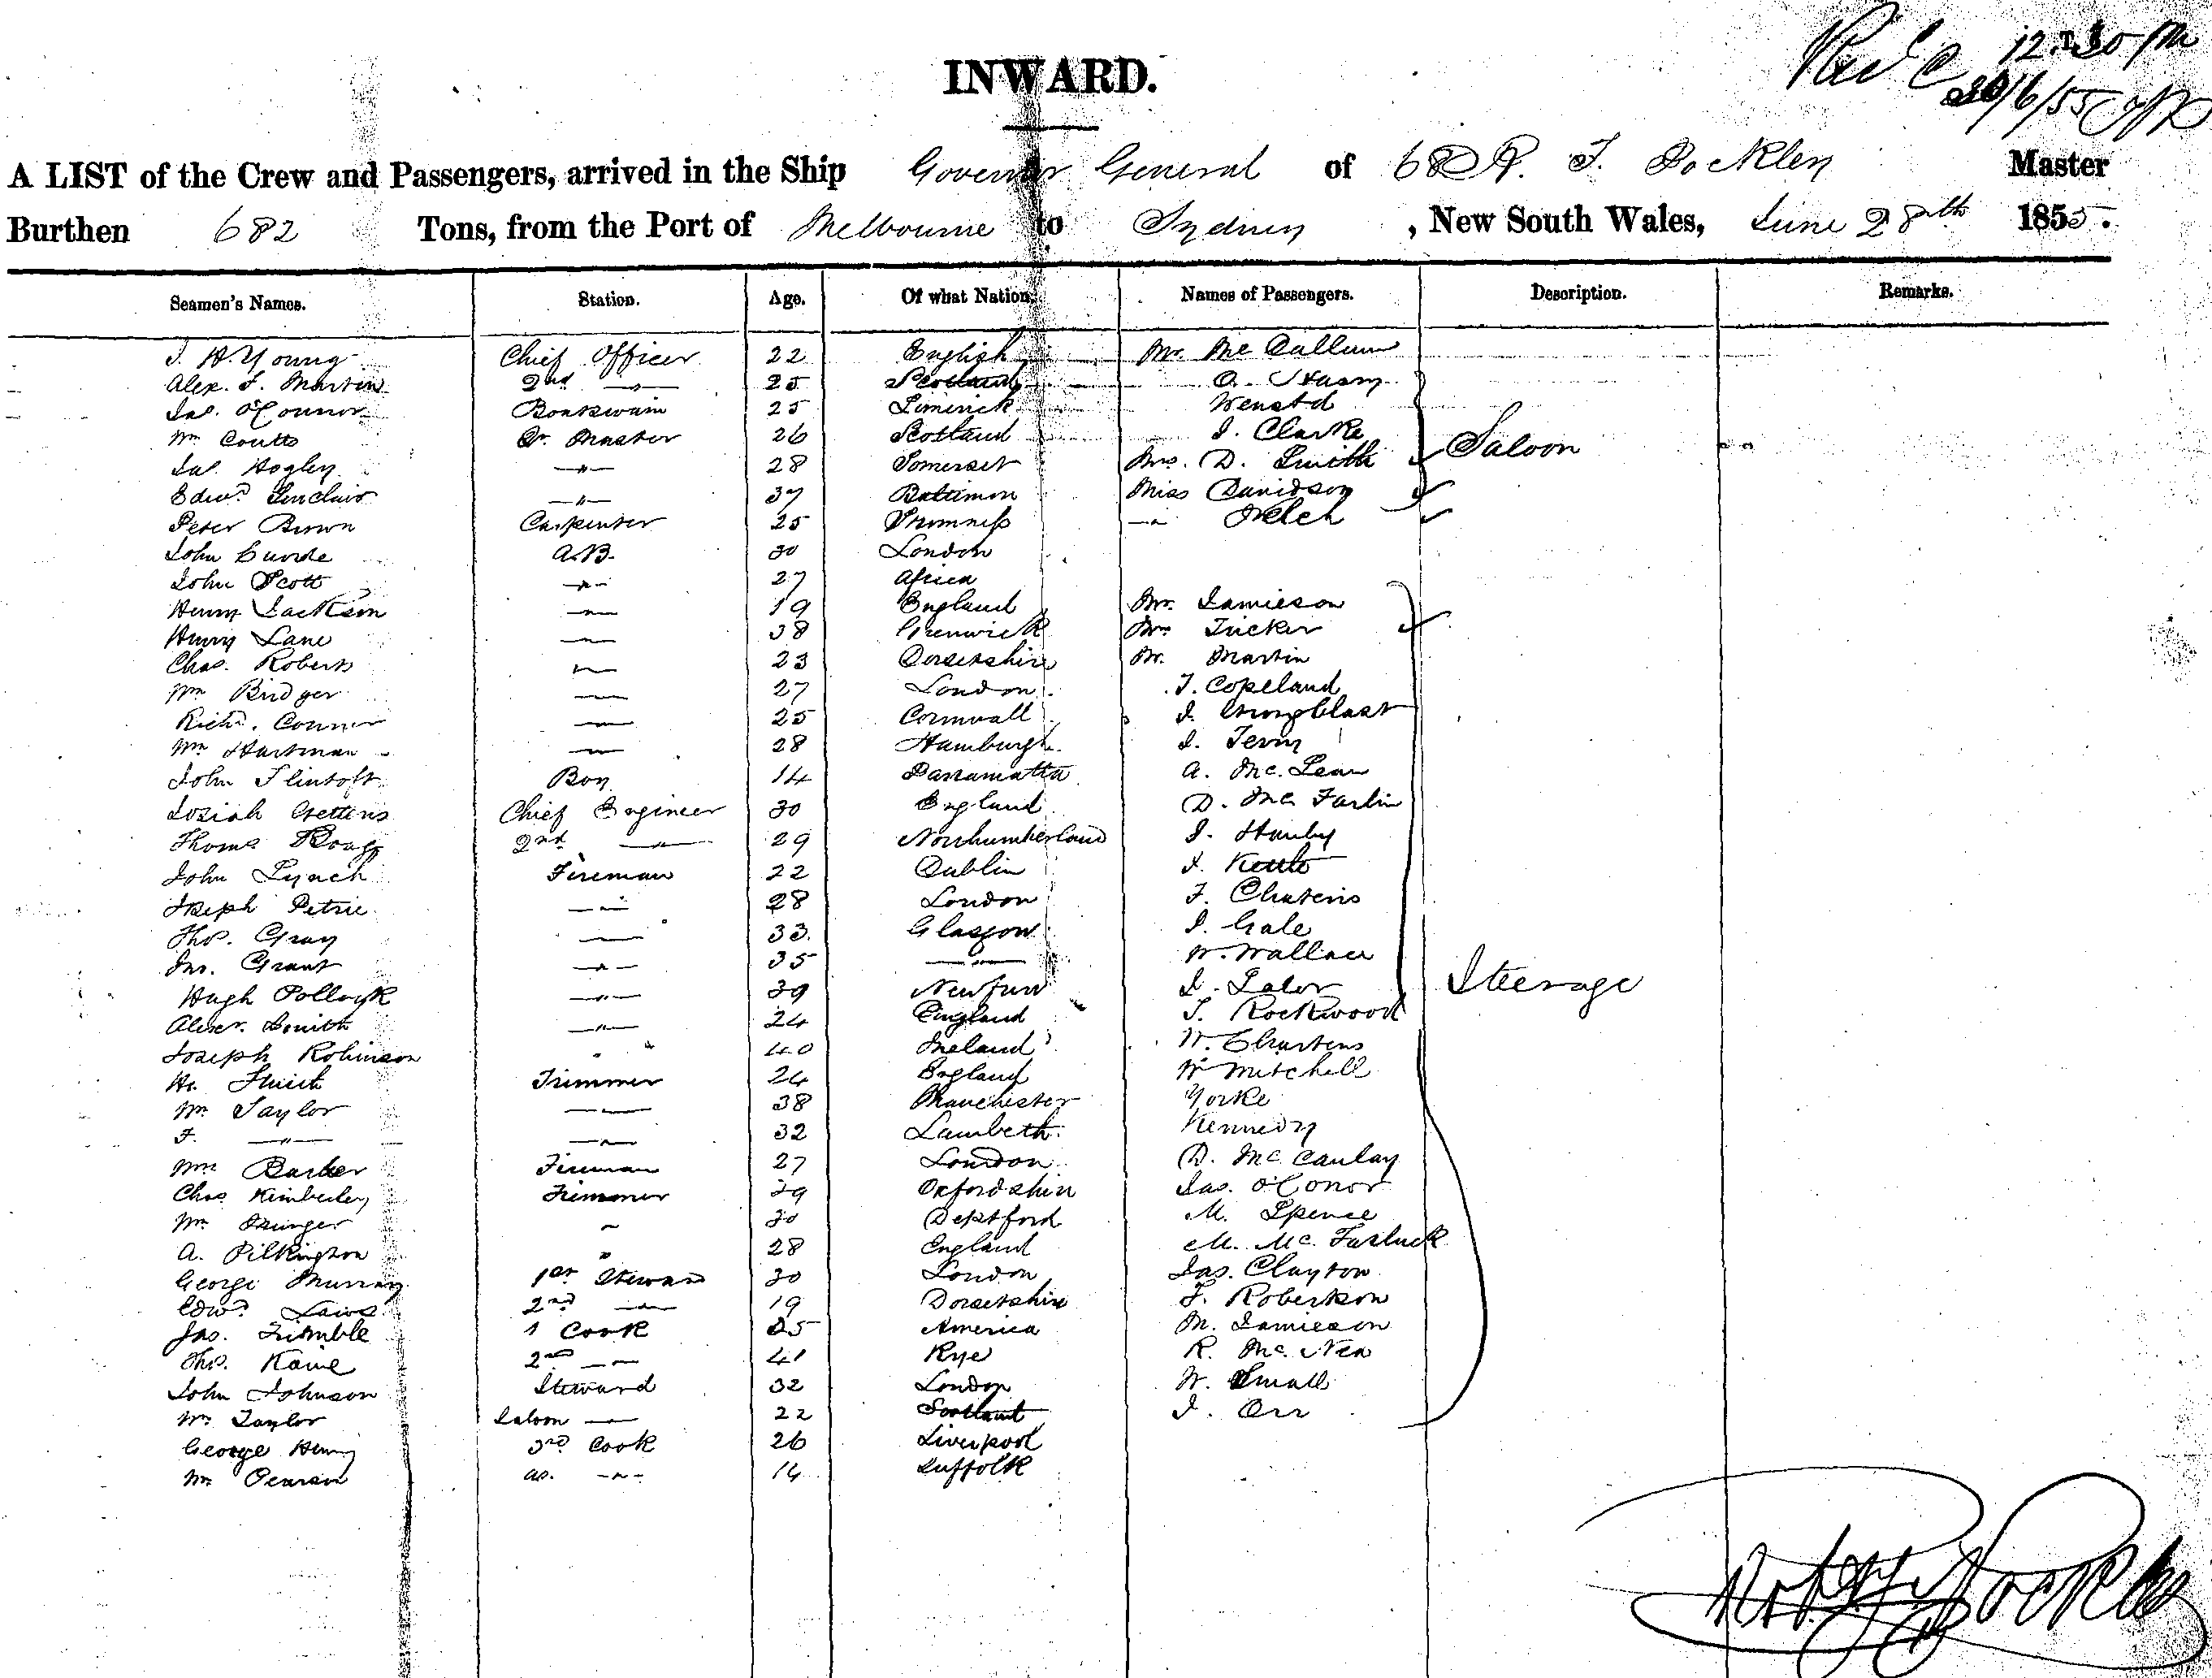 12.30 pm
30/6/55
INWARD.
A LIST of the Crew and Passengers, arrived in the Ship Governor General of 682 R. F. Pockley Master
Burthen 682 Tons, from the Port of Melbourne to Sydney, New South Wales, June 28th 1855.
Seamen's Names. Station. Age. Of what Nation. Names of Passengers. Description. Remarks.
J. H. Young Chief Officer 22 English Mr. McCallum
Alex. F. Martin 2nd —"— 25 Scotland
Jas. O'Connor Boatswain 25 Limerick
Wm Coutts Qr. Master 26 Scotland J. Clarke Saloon
Jas. Hogley —"— 28 Somerset Mrs. D. Smith
Edwd. Sinclair —"— 37 Baltimon Miss Davidson
Peter Brown Carpenter 25 Stromness —"— Welch
John A.B. 30 London
John Scott —"— 27 Africa
Henry Jackson —"— 19 England Mr. Jamieson
Henry Lane —"— 38 Greenwick Tucker
Chas. Roberts —"— 23 Dorsetshire Mr. Martin
Wm Bridger —"— 27 London T. Copeland
Richd. Connor —"— 25 Cornwall J.
Wm Hartman —"— 28 Hamburgh J. Terry
John Flintoft Boy 14 Parramatta A. Mc. Lean
Josiah Gettins Chief Engineer 30 England D. Mc Farlin
Thomas 2nd —"— 29 Northumberland J. Hanby
John Lynch Fireman 22 Dublin J. Kettle
Joseph Petrie —"— 28 London F.
Thos. Gray —"— 33 Glasgow J. Gale
Jno. Grant —"— 35 —"— W. Wallace
Hugh Pollock —"— 39 J. Lalor Steerage
Alexr. Smith —"— 24 England T. Rockwood
Joseph Robinson " " 40 Ireland W. Chartens
Hr. Trimmer 24 England W Mitchell
Wm Taylor —"— 38 Manchester Yorke
F. —"— —"— 32 Lambeth Kennedy
Wm Barker Fireman 27 London D. Mc Caulay
Chas Kimberley Trimmer 29 Oxfordshire Jas. O'Conor
Wm " 30 Deptford M. Spence
A. Pilkington " 28 England M. Mc.
George Murray 1st Steward 30 London Jas. Clayton
Edwd. Laws 2nd —"— 19 Dorsetshire F. Robertson
Jas. Trimble 1 Cook 25 America M. Jamieson
Thos. Kaine 2nd —"— 41 Rye R. Mc. Nea
John Johnson Steward 32 London W. Small
Wm Taylor Saloon —"— 22 Scotland J. Orr
George Henry 3rd Cook 26 Liverpool
Wm Pearson as. —"— 14 Suffolk